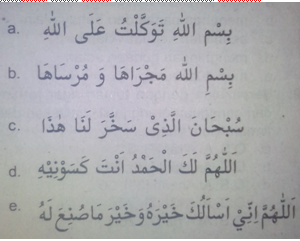 a. بِسْمِ اللهِ تَوَكَّلْتُ عَلَى اللهِ
b. بِسْمِ الله مَجْرَاهَا وَ مُرْسَاهَا
c. سُبْحَانَ الَّذِىْ سَخَّرَ لَنَا هٰذَا
d. اَللّٰهُمَّ لَكَ الْحَمْدُ اَنْتَ كَسَوْتَنِيْهِ
e. اَللّٰهُمَّ اِنِّيْ اَسْاَلُكَ خَيْرَهُ وَخَيْرَ مَاصُنِعَ لَهُ